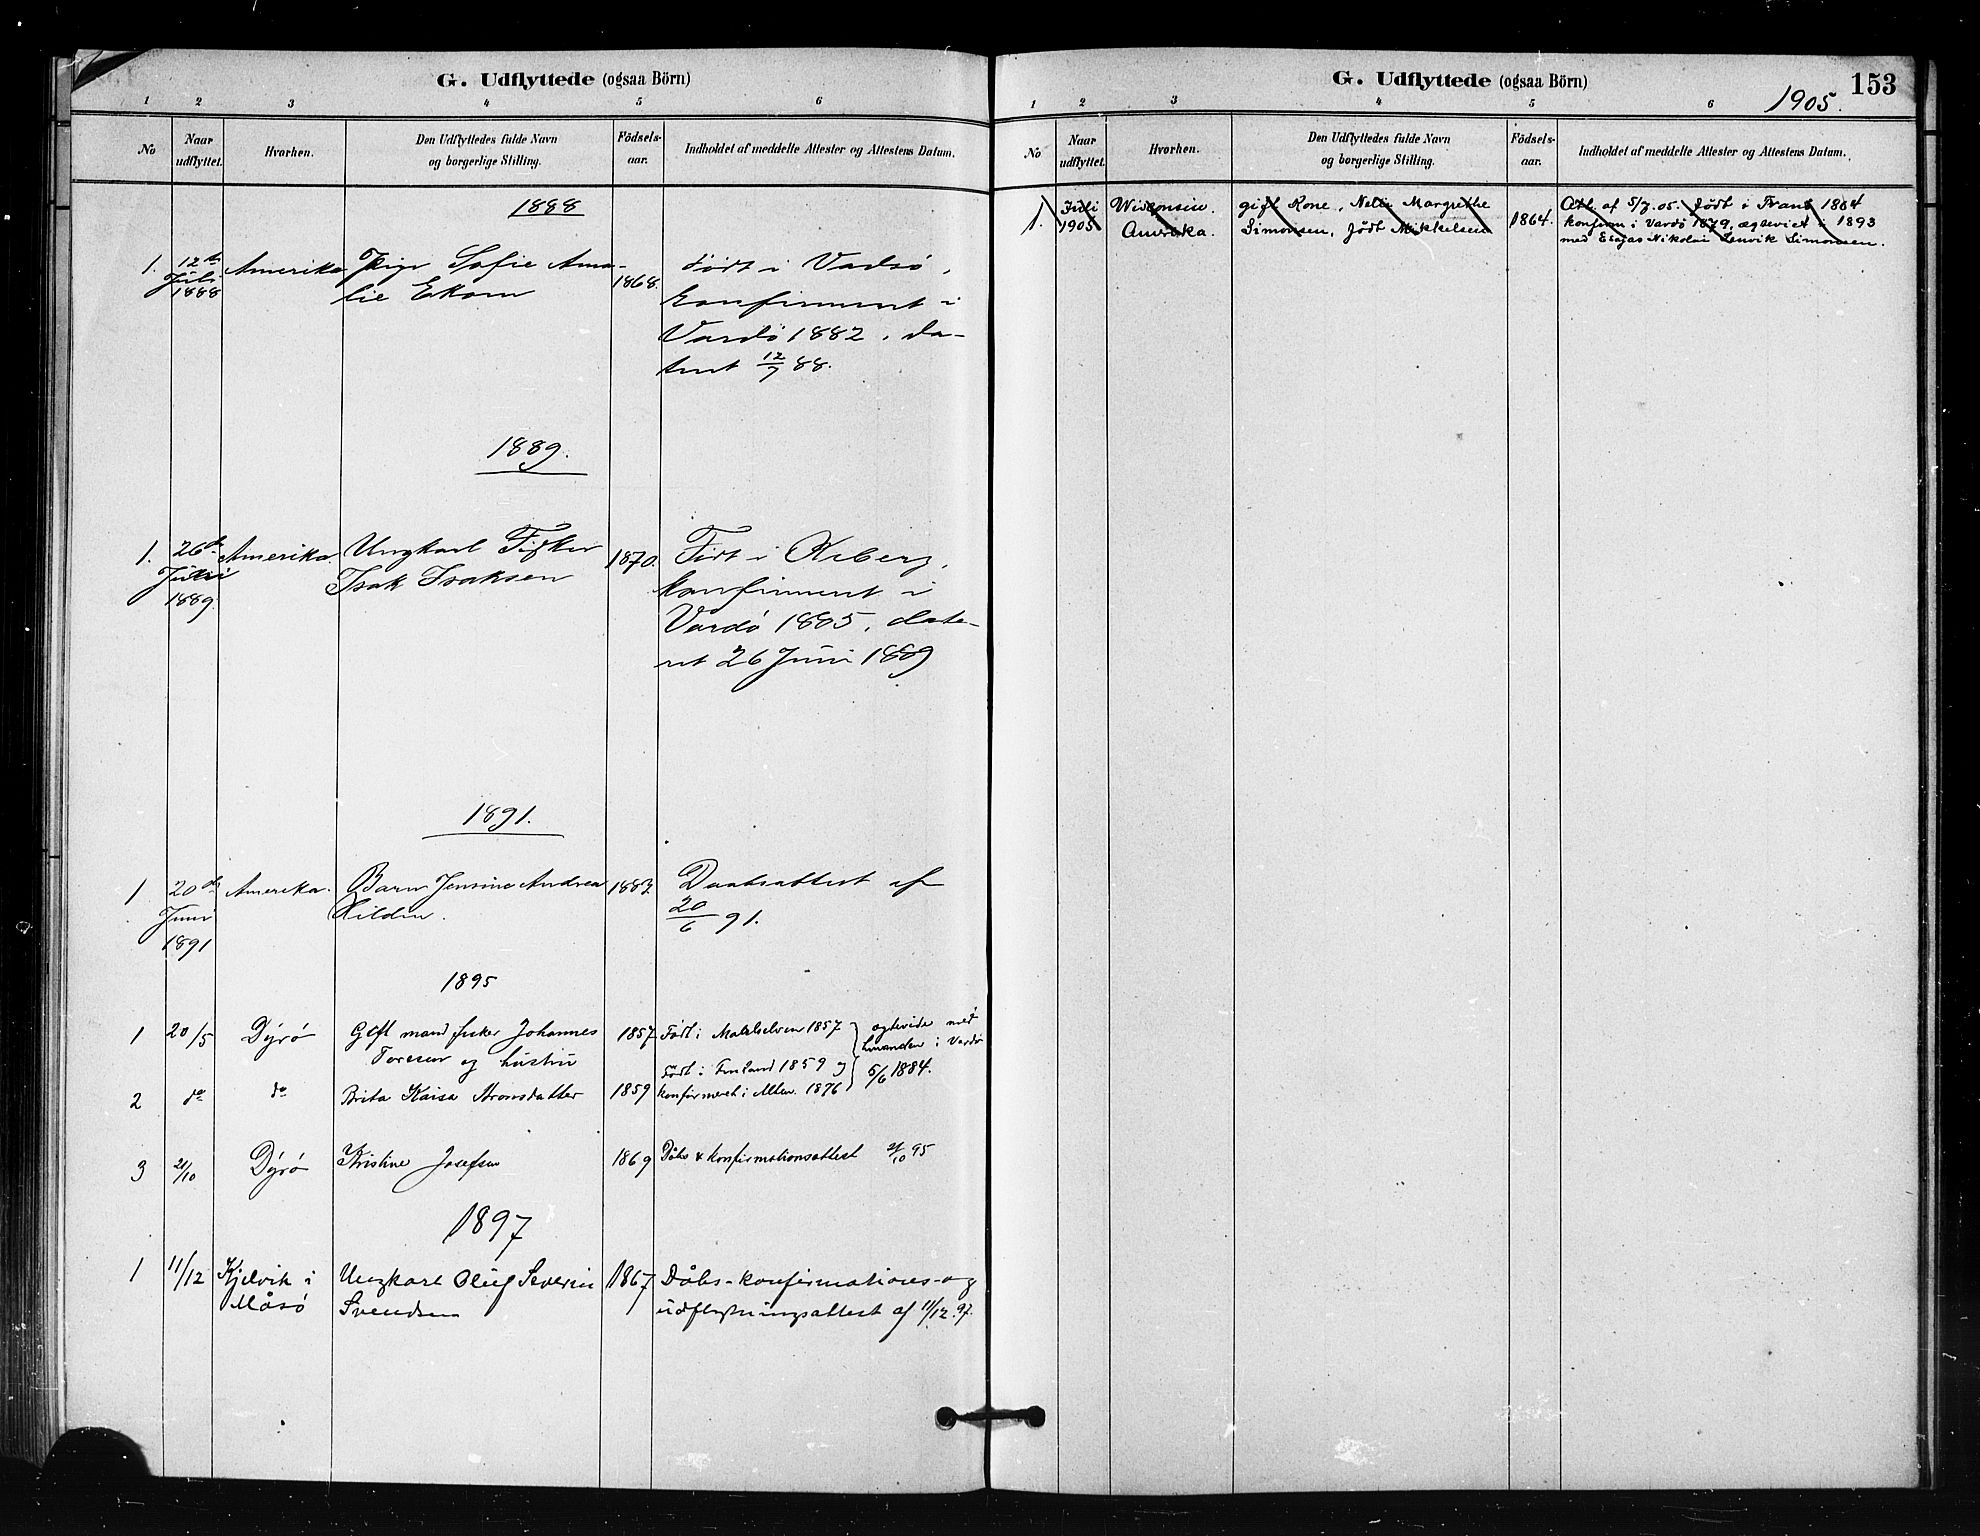 G. Udflyttede (ogsaa Börn)
1 2 3 4 5 6
No
Naar udflyttet.
Hvorhen.
Den Udflyttedes fulde Navn
og borgerlige Stilling.
Födsels-
aar.
Indholdet af meddelte Attester og Attestens Datum.
1888
1. 12te Juli 1888 Amerika Pige Sofie Ama-
lie Ekorn 1868. Född i Vadsø,
konfirmeret i
Vardø 1882, da-
teret 12/7 88.
1889.
1. 26de Juli 1889. Amerika. Ungkarl Fisker
Isak Isaksen 1870. Født i Kiberg,
konfirmeret i
Vardø 1885, date-
ret 26 Juni 1889
1891.
1 20de Juni 1891 Amerika. Barn Jensine Andrea
1883. Daabsattest af
20/6 91.
1895
1 20/5 Dyrø Gift mand fisker Johannes
Toresen og hustru 1857 Født i Maalselven 1857
ægtevide med
hinanden i Vardø
5/6 1884.
2 do do Brita Kaisa Aronsdatter 1859 Født i Finland 1859 og
konfirmeret i Alten 1876
3 21/10 Dyrø Kristine Josefsen 1869 Dåbs & konfirmationsattest 21/10 95
1897
1 11/12 Kjelvik i
Måsø Ungkarl Oluf Severin
Svendsen 1867 Dåbs-konfirmations-og
udflytningsattest af 11/12.97.
G. Udflyttede (ogsaa Börn)
153
1905.
1 2 3 4 5 6
No
Naar udflyttet.
Hvorhen.
Den Udflyttedes fulde Navn
og borgerlige Stilling.
Födsels-
aar.
Indholdet af meddelte Attester og Attestens Datum.
1. Juli 1905 Wisconsin.
Amerika. gift Kone, Nelli Margrethe
Simonsen, født Mikkelsen 1864. Att. af 5/7.05. født i Tranø 1864
konfirm. i Vardø 1879, ægteviet i 1893
med Esajas Nikolai Lenvik Simonsen.